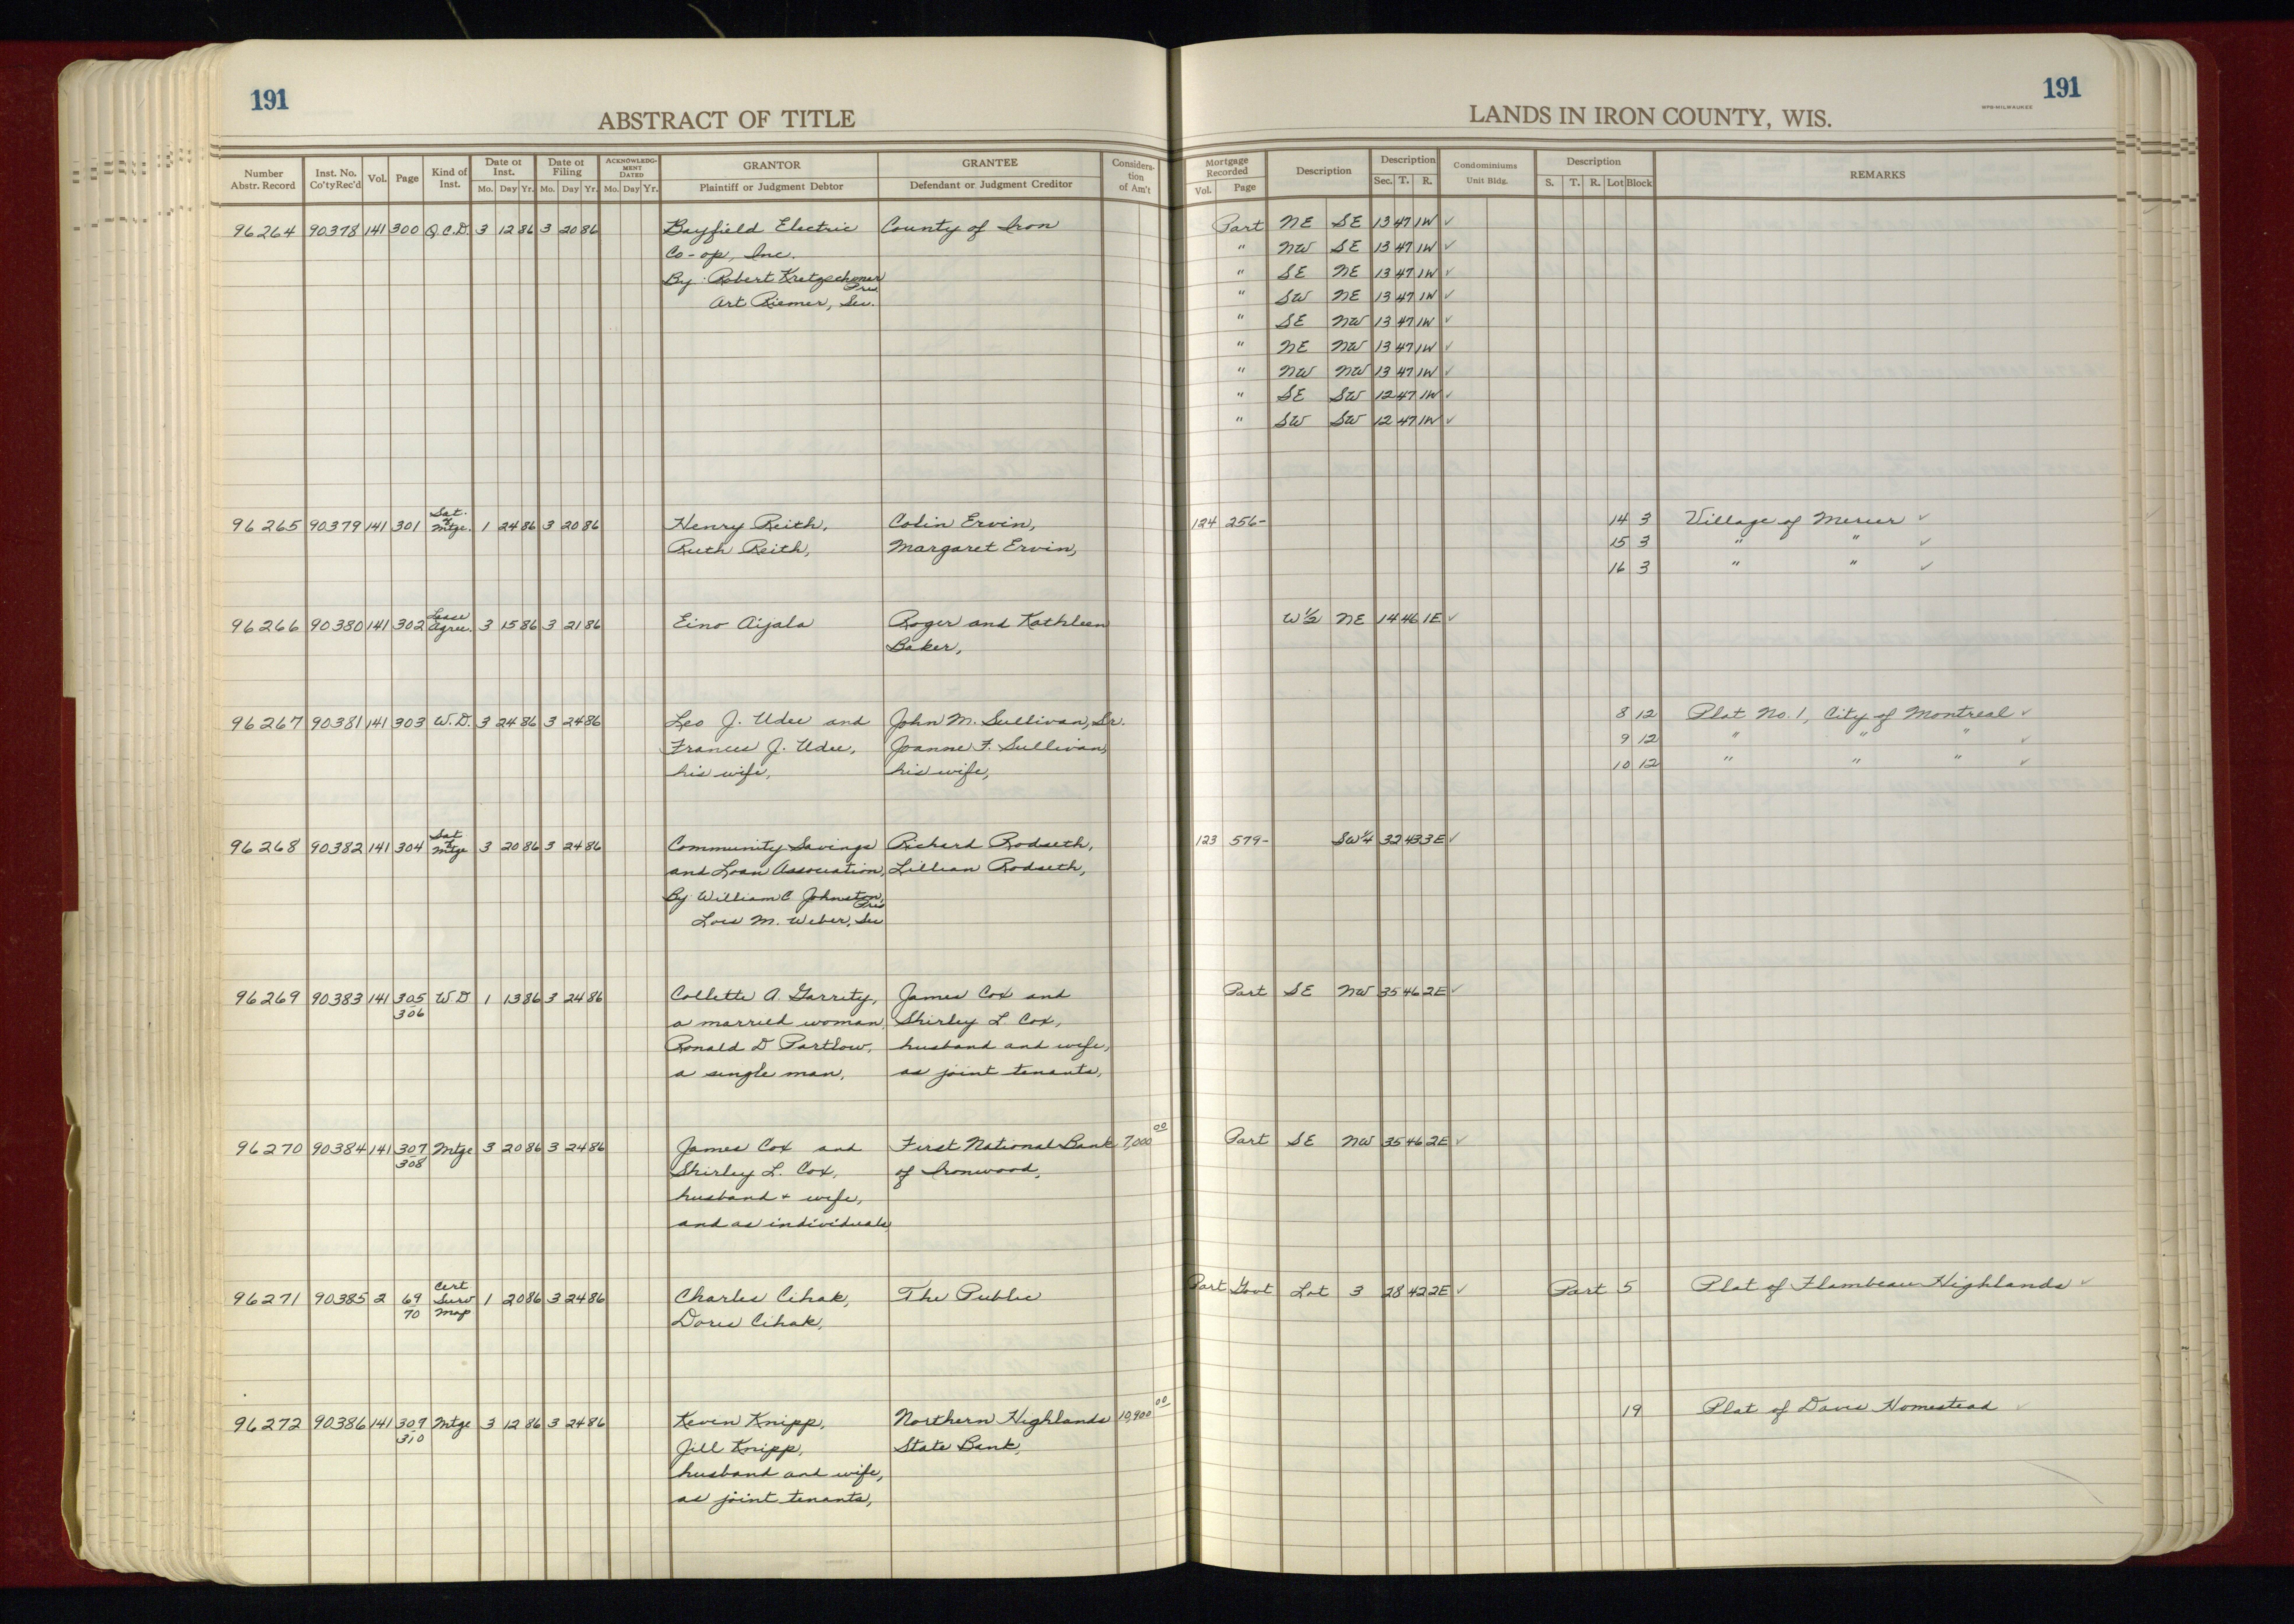 191
ABSTRACT OF TITLE
Number Abstr. Record | Inst. No. Co'ty Rec'd | Vol. | Page | Kind of Inst. | Date of Inst. Mo. Day Yr. | Date of Filing Mo. Day Yr. | ACKNOWLEDGMENT DATED Mo. Day Yr. | GRANTOR Plaintiff or Judgment Debtor | GRANTEE Defendant or Judgment Creditor | Consideration of Am't
96264 90378 141 300 Q.C.D. 3 12 86 3 20 86 Bayfield Electric County of Iron
Co-op, Inc.
By: Robert Kretzschmar
Pres.
Art Riemer, Sec.
96265 90379 141 301 Sat. of Mtge. 1 24 86 3 20 86 Henry Reith, Colin Ervin,
Ruth Reith, Margaret Ervin,
96266 90380 141 302 Lease Agree. 3 15 86 3 21 86 Eino Aijala Roger and Kathleen
Baker,
96267 90381 141 303 W.D. 3 24 86 3 24 86 Leo J. Udee and John M. Sullivan, Sr.
Frances J. Udee, Joanne F. Sullivan,
his wife, his wife,
96268 90382 141 304 Sat of Mtge 3 20 86 3 24 86 Community Savings Richard Rodseth,
and Loan Association, Lillian Rodseth,
By William C Johnston,
Pres
Lois M. Weber, Sec
96269 90383 141 305 W D 1 13 86 3 24 86 Collette A. Garrity, James Cox and
306 a married woman, Shirley L. Cox,
Ronald D Partlow, husband and wife,
a single man, as joint tenants,
96270 90384 141 307 Mtge 3 20 86 3 24 86 James Cox and First National Bank 7,000 00
308 Shirley L. Cox, of Ironwood,
husband + wife,
and as individuals,
96271 90385 2 69 Cert Surv Map 1 20 86 3 24 86 Charles Cihak, The Public
70 Doris Cihak,
96272 90386 141 309 Mtge 3 12 86 3 24 86 Kevin Knipp, Northern Highlands 10,900 00
310 Jill Knipp, State Bank,
husband and wife,
as joint tenants,
191
WPB-MILWAUKEE
LANDS IN IRON COUNTY, WIS.
Mortgage Recorded Vol. Page | Description | Description Sec. T. R. | Condominiums Unit Bldg. | Description S. T. R. Lot Block | REMARKS
Part NE SE 13 47 1W ✓
" NW SE 13 47 1W ✓
" SE NE 13 47 1W ✓
" SW NE 13 47 1W ✓
" SE NW 13 47 1W ✓
" NE NW 13 47 1W ✓
" NW NW 13 47 1W ✓
" SE SW 12 47 1W ✓
" SW SW 12 47 1W ✓
124 256- 14 3 Village of Mercer ✓
15 3 " " ✓
16 3 " " ✓
W½ NE 14 46 1E ✓
8 12 Plat No. 1, City of Montreal ✓
9 12 " " " ✓
10 12 " " " ✓
123 579- SW¼ 32 43 3E ✓
Part SE NW 35 46 2E ✓
Part SE NW 35 46 2E ✓
Part Govt Lot 3 28 42 2E ✓ Part 5 Plat of Flambeau Highlands ✓
19 Plat of Davis Homestead ✓